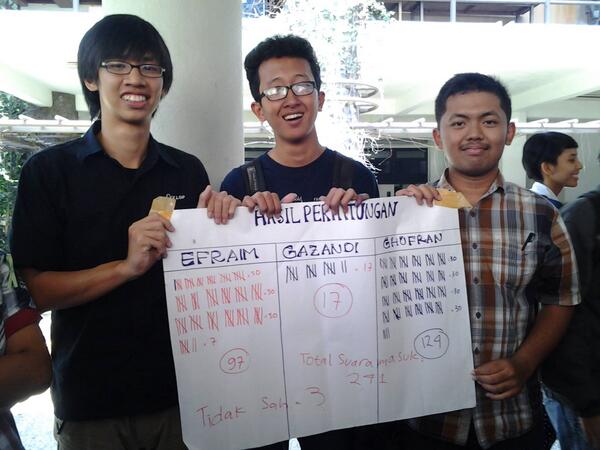 HASIL PERHITUNGAN
EFRAIM GAZANDI GHOFRAN
= 30
= 30
= 30
= 7
97
= 17
17
= 30
= 30
= 30
= 30
124
Total Suara masuk:
241
Tidak Sah = 3